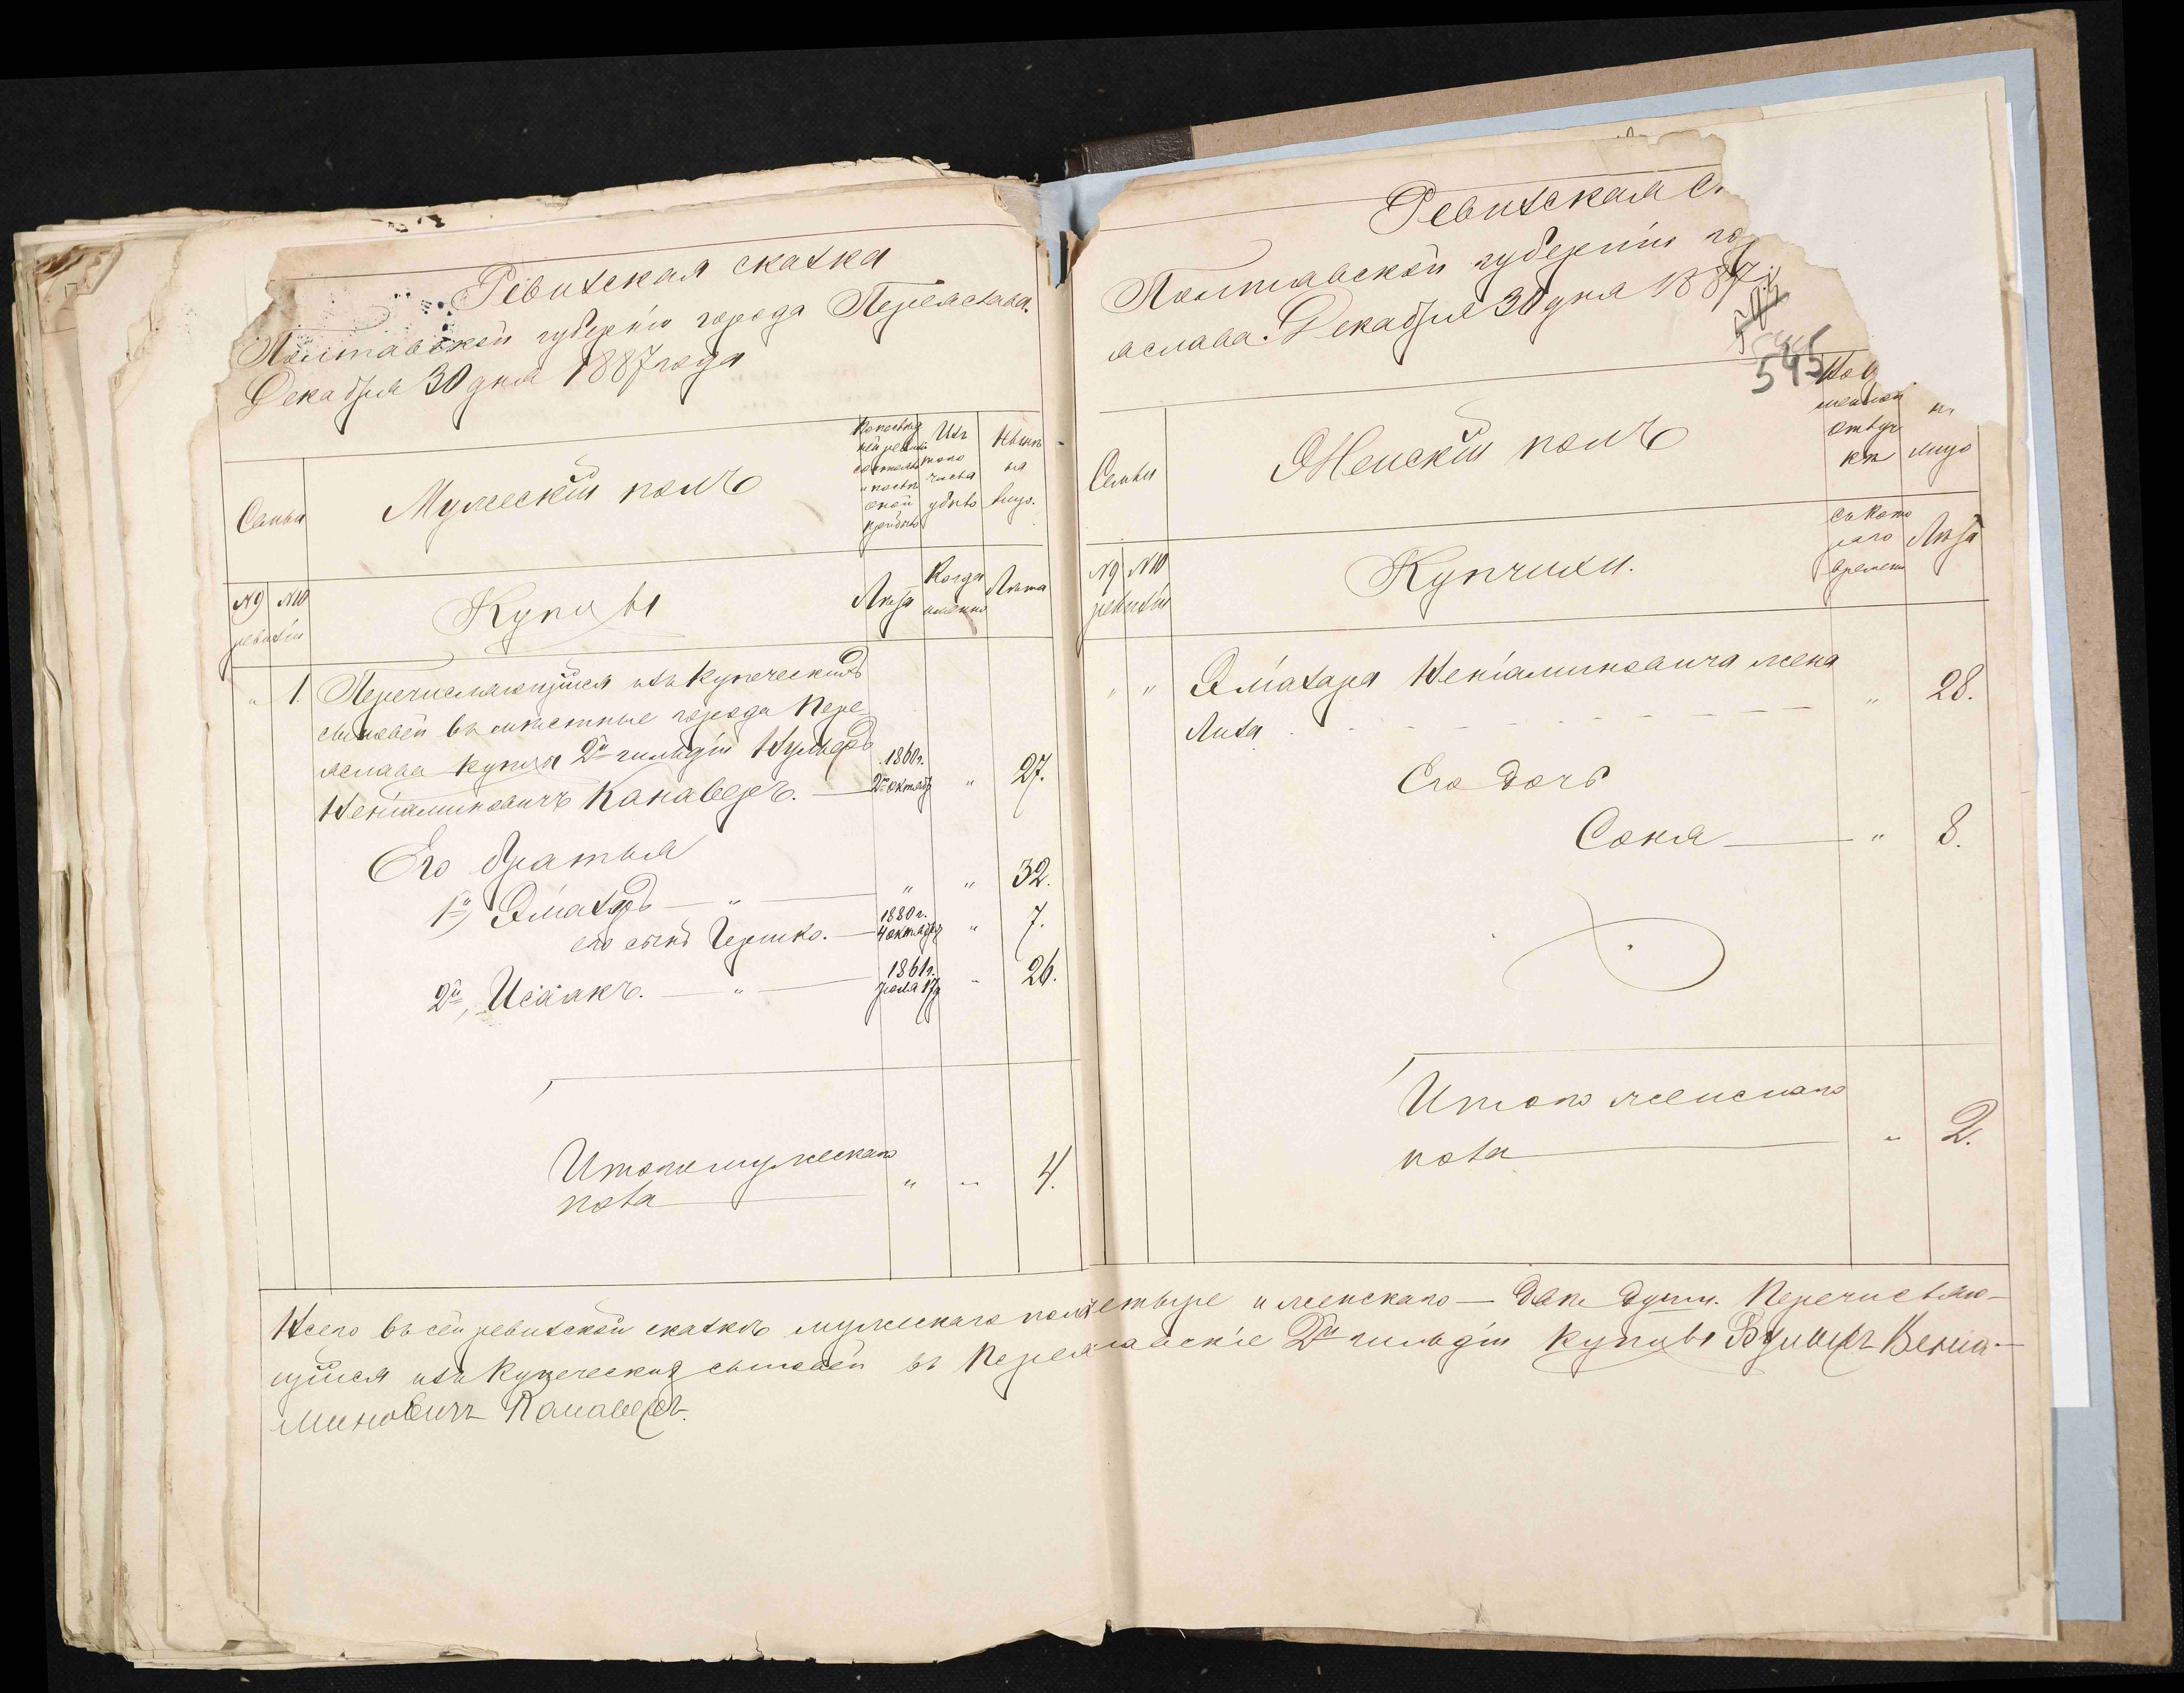 Ревизская сказка
Полтавской губерніи города Переяслава.
Декабря 30 дня 1887 года
Семьи
Мужескій полъ
Изъ
того
числа
убыло
Нынѣ
на
лицо.
№ 9 № 10
ревизіи
Купцы
Лѣта
Когда
именно
Лѣта
" 1. Перечисляющійся изъ купеческихъ
сыновей въ
города Пере
яслава купца 2й гильдіи Вульфъ
Веніаминовичъ Канаверъ. — 1860 г. 2го октяб " 27.
Его братья
1й, Элiазаръ — " — " " 32.
его сынъ Гершко. — 1880 г. 4 октября " 7.
2й, Исаакъ. — " — 1861 г. 17 " 26.
Итого мужескаго
пола — " " 4.
Ревизская с
Полтавской губерніи го
яслава. Декабря 30 дня 1887
545
Семьи
Женскій полъ
лицо
№ 9 № 10
ревизіи
Купчихи.
съ кото
раго
времени
Лѣта
" " Эліазара Веніаминовича жена
Лиза - - - - - - " 28.
Его дочь
Соня — " 8.
Итого женскаго
пола — " 2.
Всего въ сей ревизской сказкѣ мужескаго пола четыре и женскаго — двѣ души. Перечисляю-
щійся изъ купеческихъ сыновей въ Переяславскіе 2й гильдіи купцы Вульфъ Венiа-
миновичъ Канаверъ.